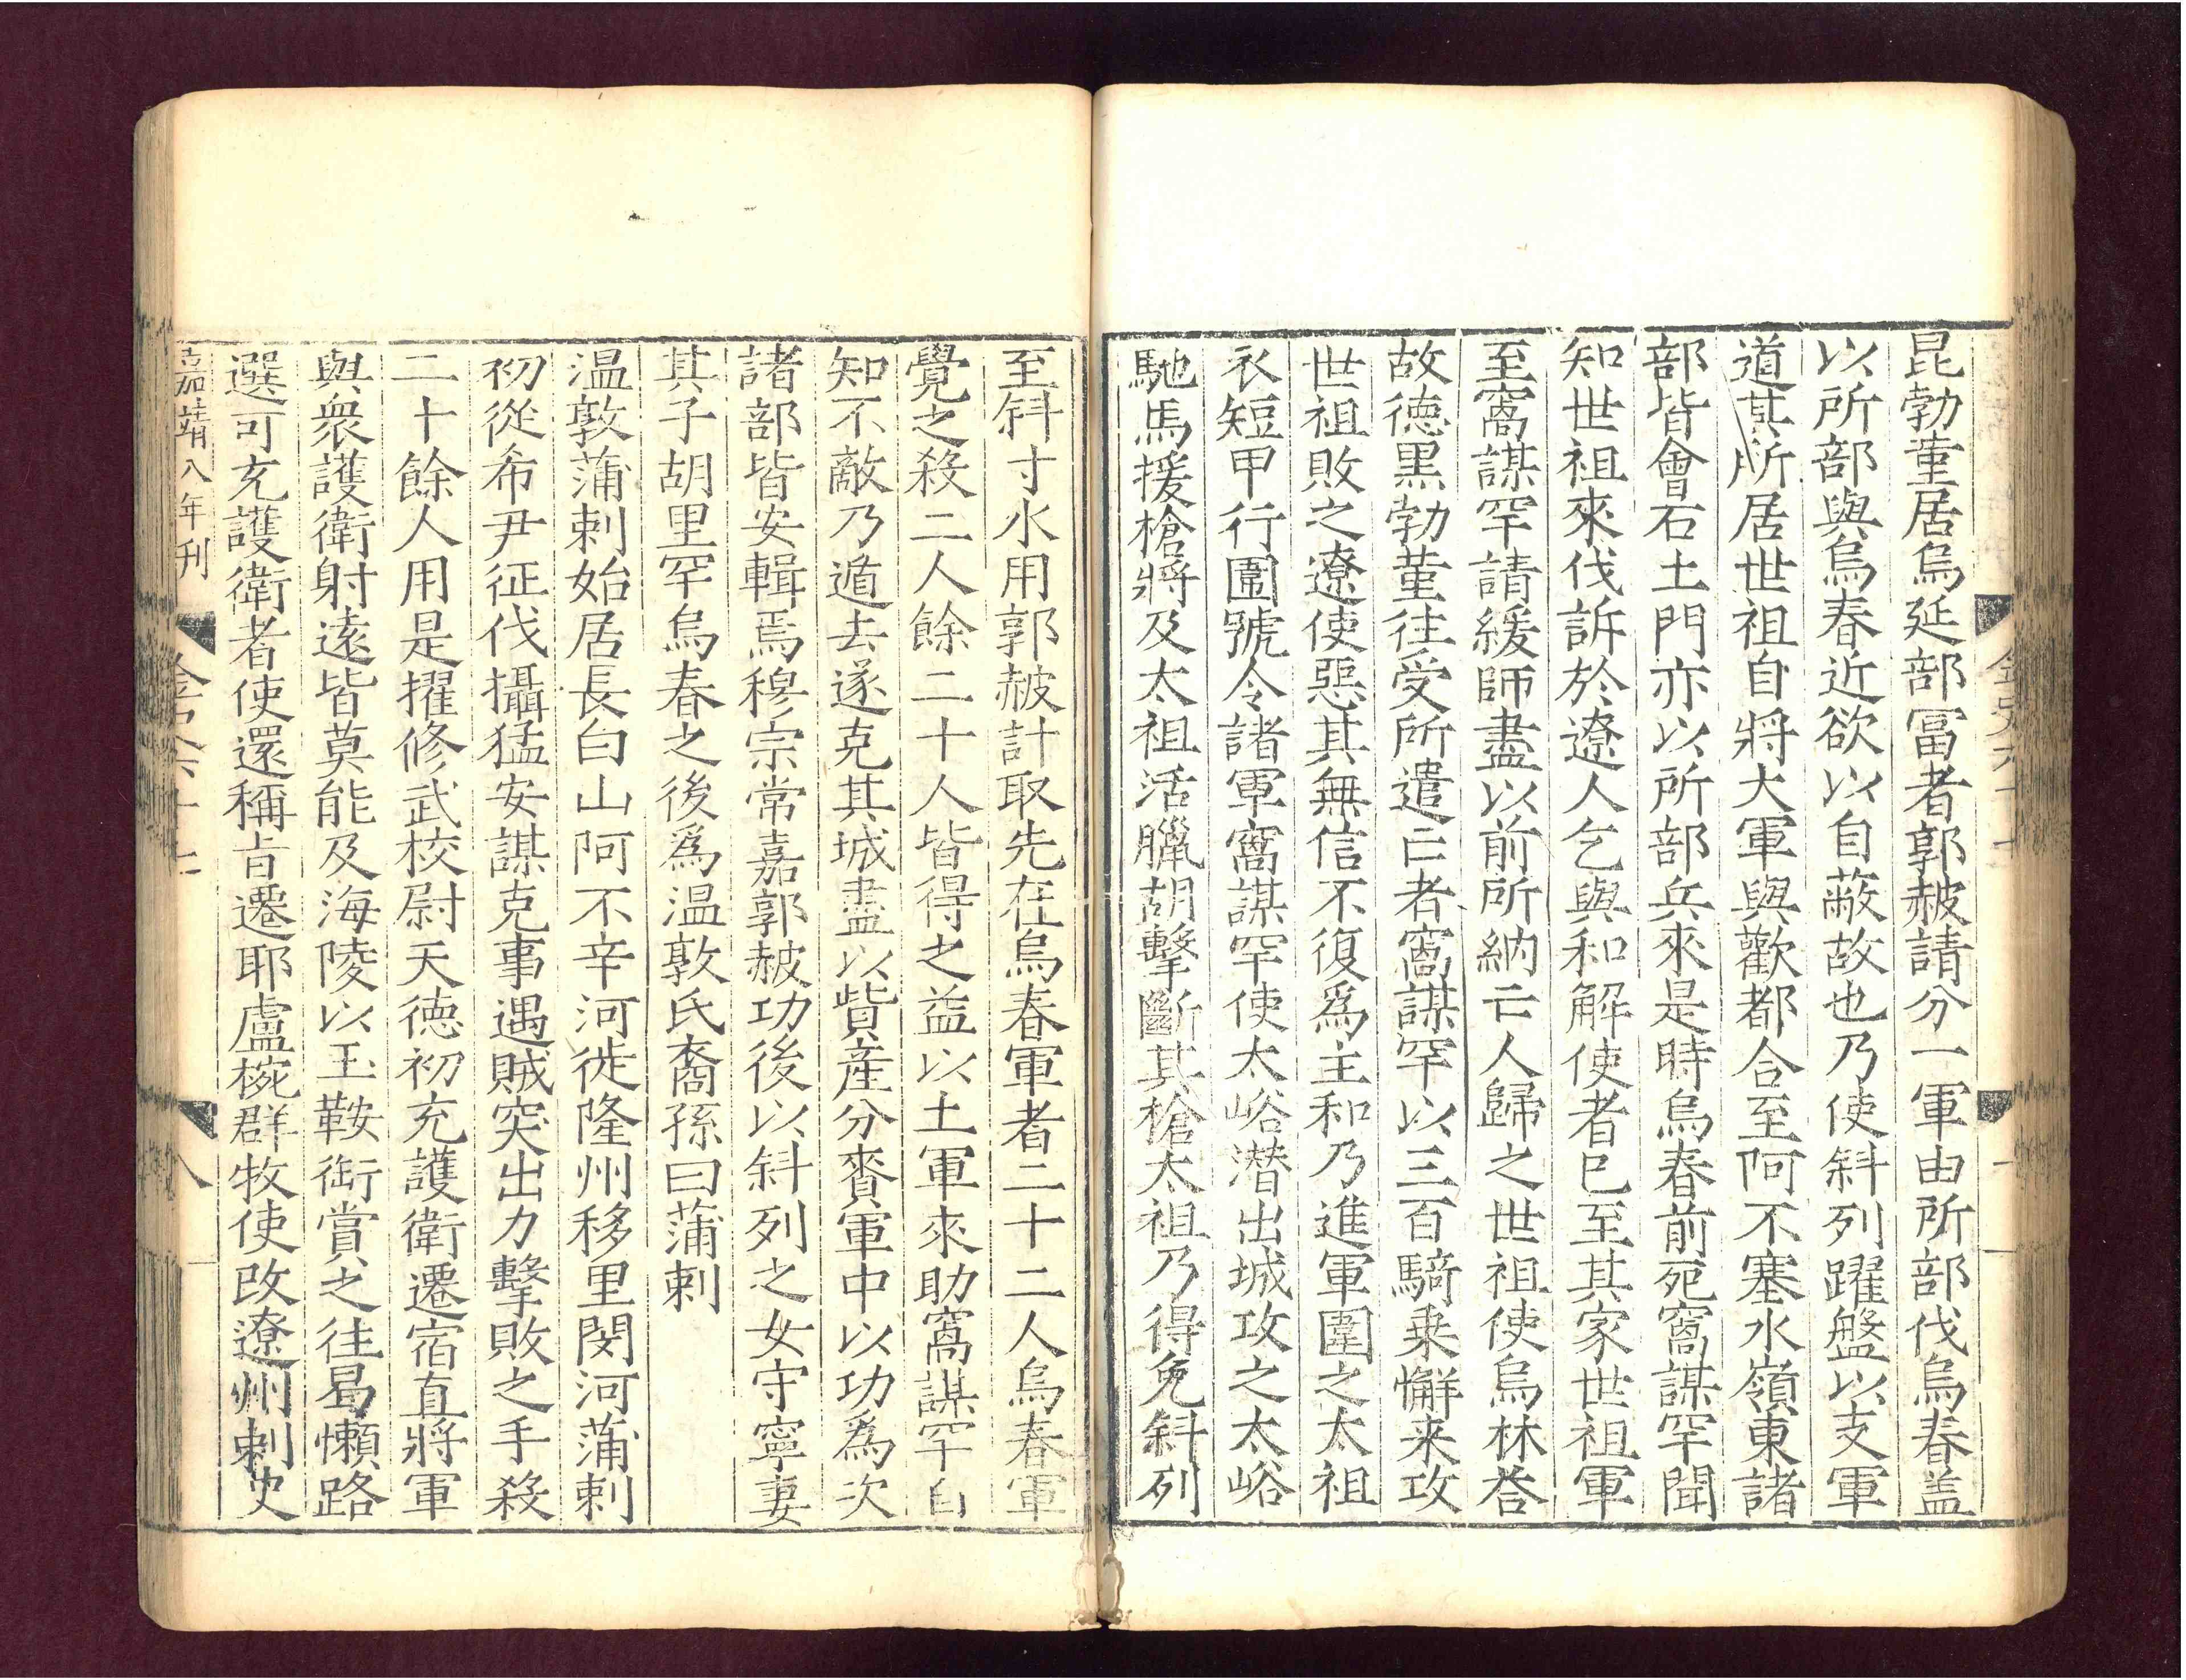 昆勃菫居烏延部富者郭赧請分一軍由所部伐烏春盖
以所部與烏春近欲以自蔽故也乃使斜列躍盤以支軍
道其所居世祖自將大軍與歡都合至阿不塞水嶺東諸
部皆會石土門亦以所部兵來是時烏春前死窩謀罕聞
知世祖來伐訴於遼人乞與和解使者巳至其家世祖軍
至窩謀罕請緩師盡以前所納亡人歸之世祖使烏林荅
故德黑勃菫往受所遣亡者窩謀罕以三百騎乗懈来攻
世祖敗之遼使惡其無信不復爲主和乃進軍圍之太祖
衣短甲行圍號令諸軍窩謀罕使太峪潜出城攻之太峪
馳馬援槍將及太祖活臘胡擊斷其槍太祖乃得免斜列
至斜寸水用郭赧計取先在烏春軍者二十二人烏春軍
覺之殺二人餘二十人皆得之益以土軍來助窩謀罕自
知不敵乃遁去遂克其城盡以貲産分賚軍中以功爲次
諸部皆安輯焉穆宗常嘉郭赧功後以斜列之女守寧妻
其子胡里罕烏春之後爲温敦氏裔孫曰蒲剌
温敦蒲剌始居長白山阿不辛河徙隆州移里閔河蒲剌
初從希尹征伐攝猛安謀克事遇賊突出力擊敗之手殺
二十餘人用是擢修武校尉天德初充護衛遷宿直將軍
與衆護衛射遠皆莫能及海陵以玉鞍衘賞之往曷懶路
選可充護衛者使還稱旨遷耶盧椀群牧使改遼州刺史
嘉靖八年刊
金史六十七
八